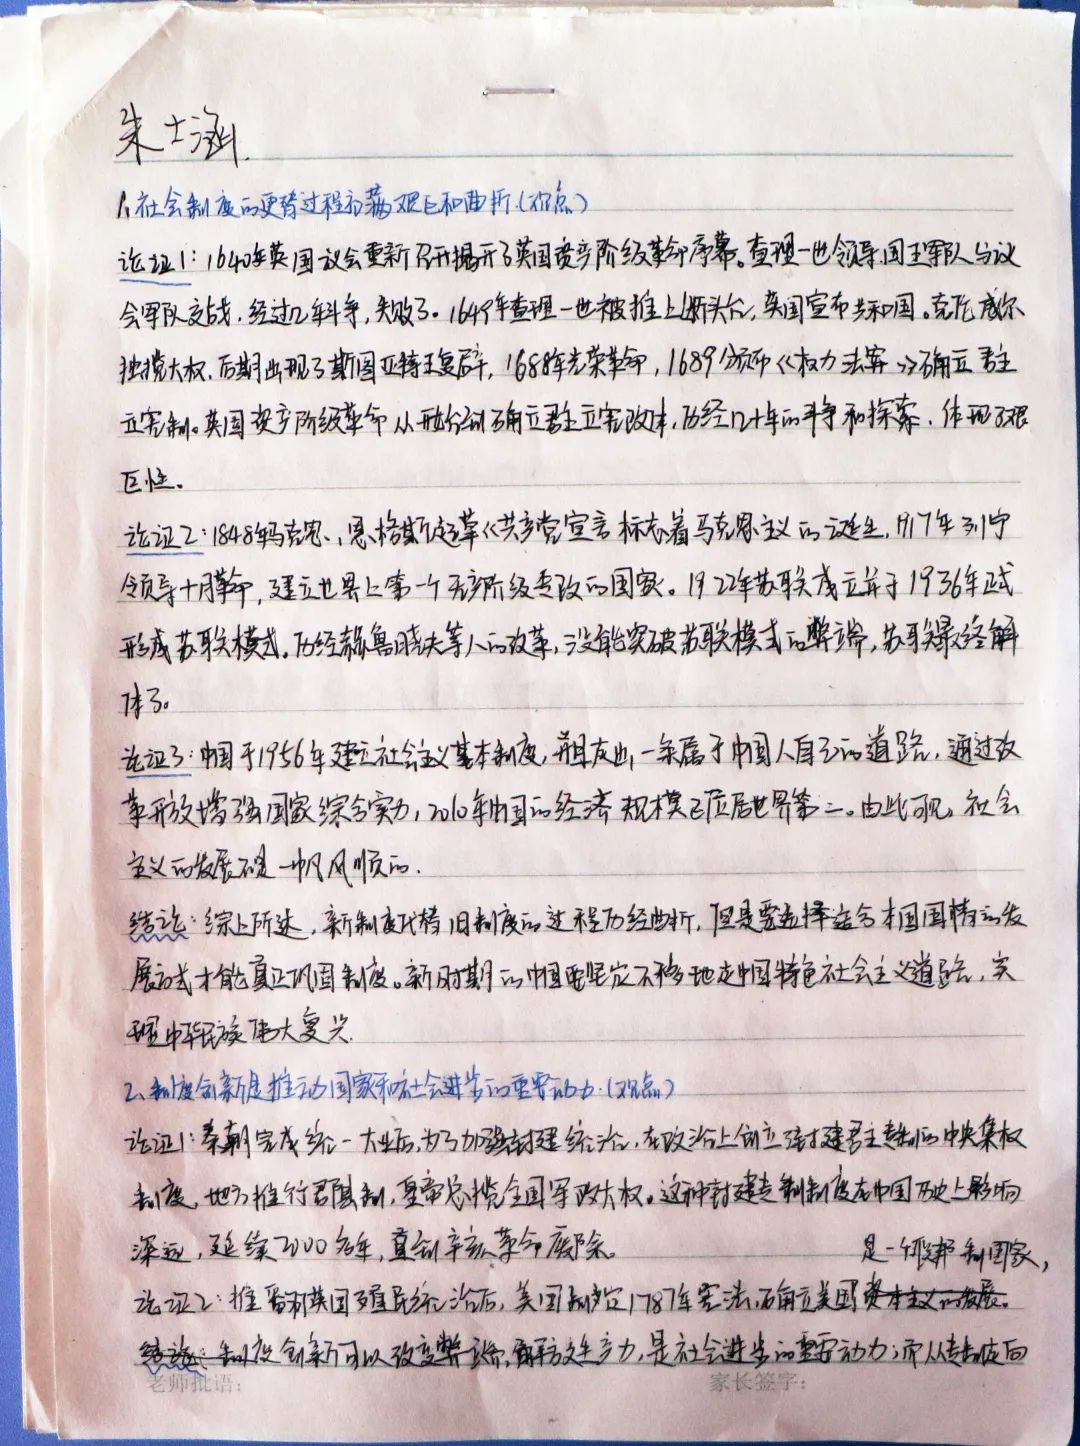 朱士涵
1、社会制度的更替过程充满艰巨和曲折（观点）
论证1：1640年英国议会重新召开揭开了英国资产阶级革命序幕。查理一世领导国王军队与议
会军队交战，经过几年斗争，失败了。1649年查理一世被推上断头台，英国宣布共和国。克伦威尔
独揽大权，后期出现了斯图亚特王复辟，1688年光荣革命，1689年颁布《权力法案》确立君主
立宪制。英国资产阶级革命从开始到确立君主立宪政体，历经几十年的斗争和探索，体现了艰
巨性。
论证2：1848年马克思、恩格斯起草《共产党宣言标志着马克思主义的诞生，1917年列宁
领导十月革命，建立世界上第一个无产阶级专政的国家。1922年苏联成立并于1936年正式
形成苏联模式。历经赫鲁晓夫等人的改革，没能突破苏联模式的弊端，苏联最终解
体了。
论证3：中国于1956年建立社会主义基本制度，并且走出一条属于中国人自己的道路，通过改
革开放增强国家综合实力，2010年中国的经济规模已位居世界第二。由此可见，社会
主义的发展不是一帆风顺的.
结论：综上所述，新制度代替旧制度的过程历经曲折，但是要选择适合本国国情的发
展方式才能真正巩固制度。新时期的中国要坚定不移地走中国特色社会主义道路，实
现中华民族伟大复兴.
2、制度创新是推动国家和社会进步的重要动力.（观点）
论证1：秦朝完成统一大业后，为了加强封建统治，在政治上创立封建君主专制的中央集权
制度，地方推行郡县制，皇帝总揽全国军政大权。这种封建专制制度在中国历史上影响
深远，延续2000多年，直到辛亥革命废除。
是一个联邦制国家，
论证2：推翻英国殖民统治后，美国制定1787年宪法，确立美国资本主义的发展。
结论：制度创新可以改变弊端，解放生产力，是社会进步的重要动力；而从专制走向
老师批语：
家长签字：